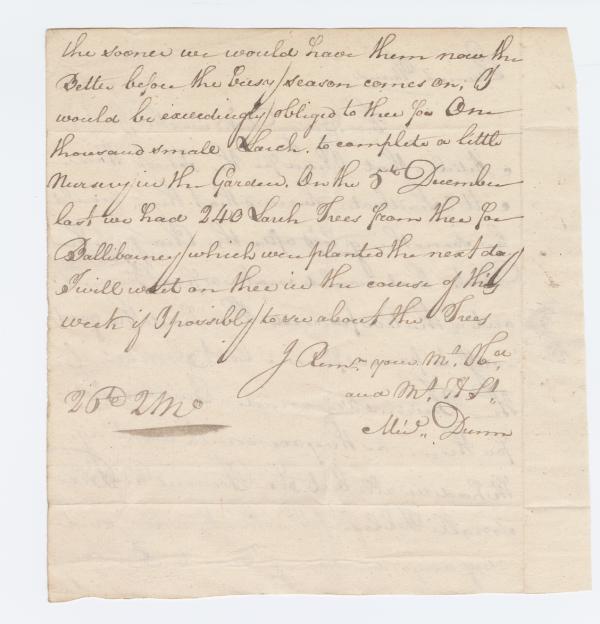 the sooner we would have them now the
Better before the busy season comes on, I
would be exceedingly obliged to thee for One
thousand small Larch, to complete a little
Nursery in the Garden. On the 5th December
last we had 240 Larch Trees from thee for
Ballibarney which were planted the next day
I will wait on thee in the course of this
week if I possibly to see about the Trees
I Remn. your Mt. Obt.
and Mt. H St.
Michl. Dunn
26th 2 Mo